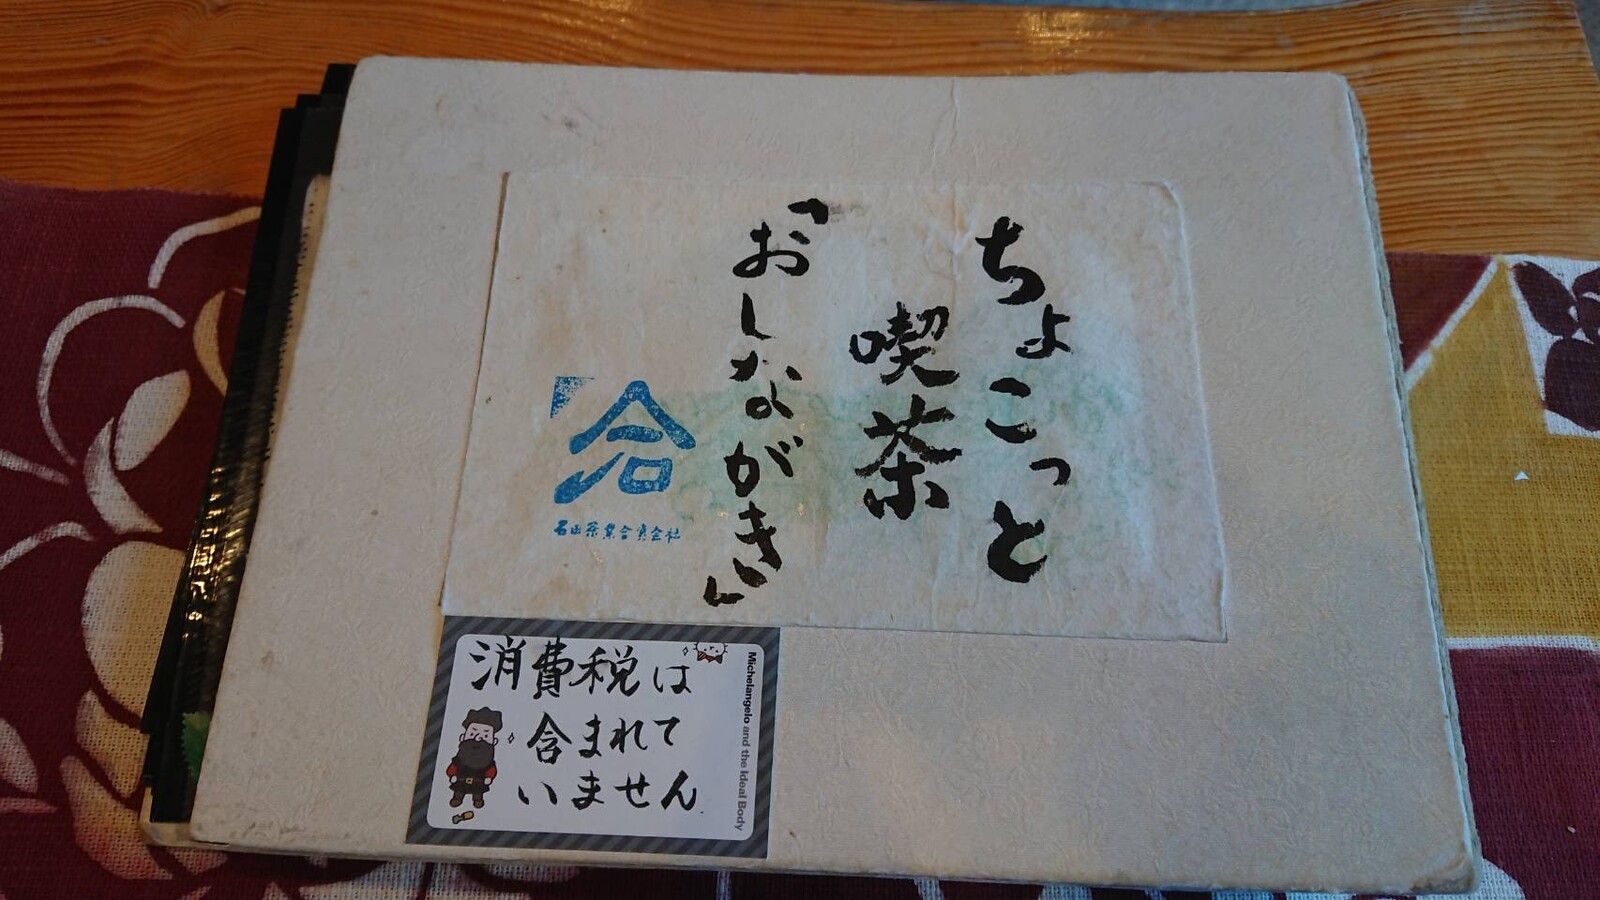 ちょこっと
喫茶
「おしながき」
石田茶業合資会社
消費税は
含まれて
いません
Michelangelo and the Ideal Body